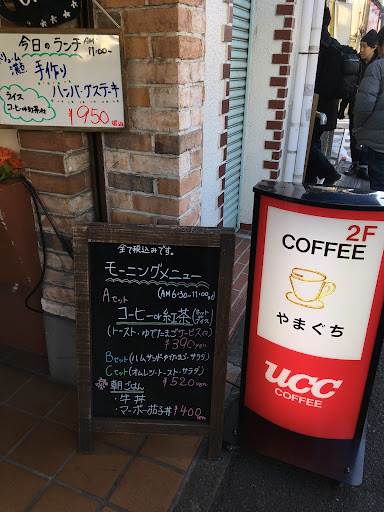 今日のランチ AM11:00〜
手作り
ハンバーグステーキ
ライス
コーヒーor紅茶付
¥950
税込
全て税込みです。
モーニングメニュー
Aセット (AM6:30~11:00)
コーヒーor紅茶 (ホット アイス)
(トースト・ゆでたまごサービス)
¥390yen
Bセット(ハムサンド・ゆでたまご・サラダ)
Cセット(オムレツ・トースト・サラダ)
¥520yen
朝ごはん
・牛丼
・マーボー茄子丼 ¥400yen
2F
COFFEE
やまぐち
UCC
COFFEE